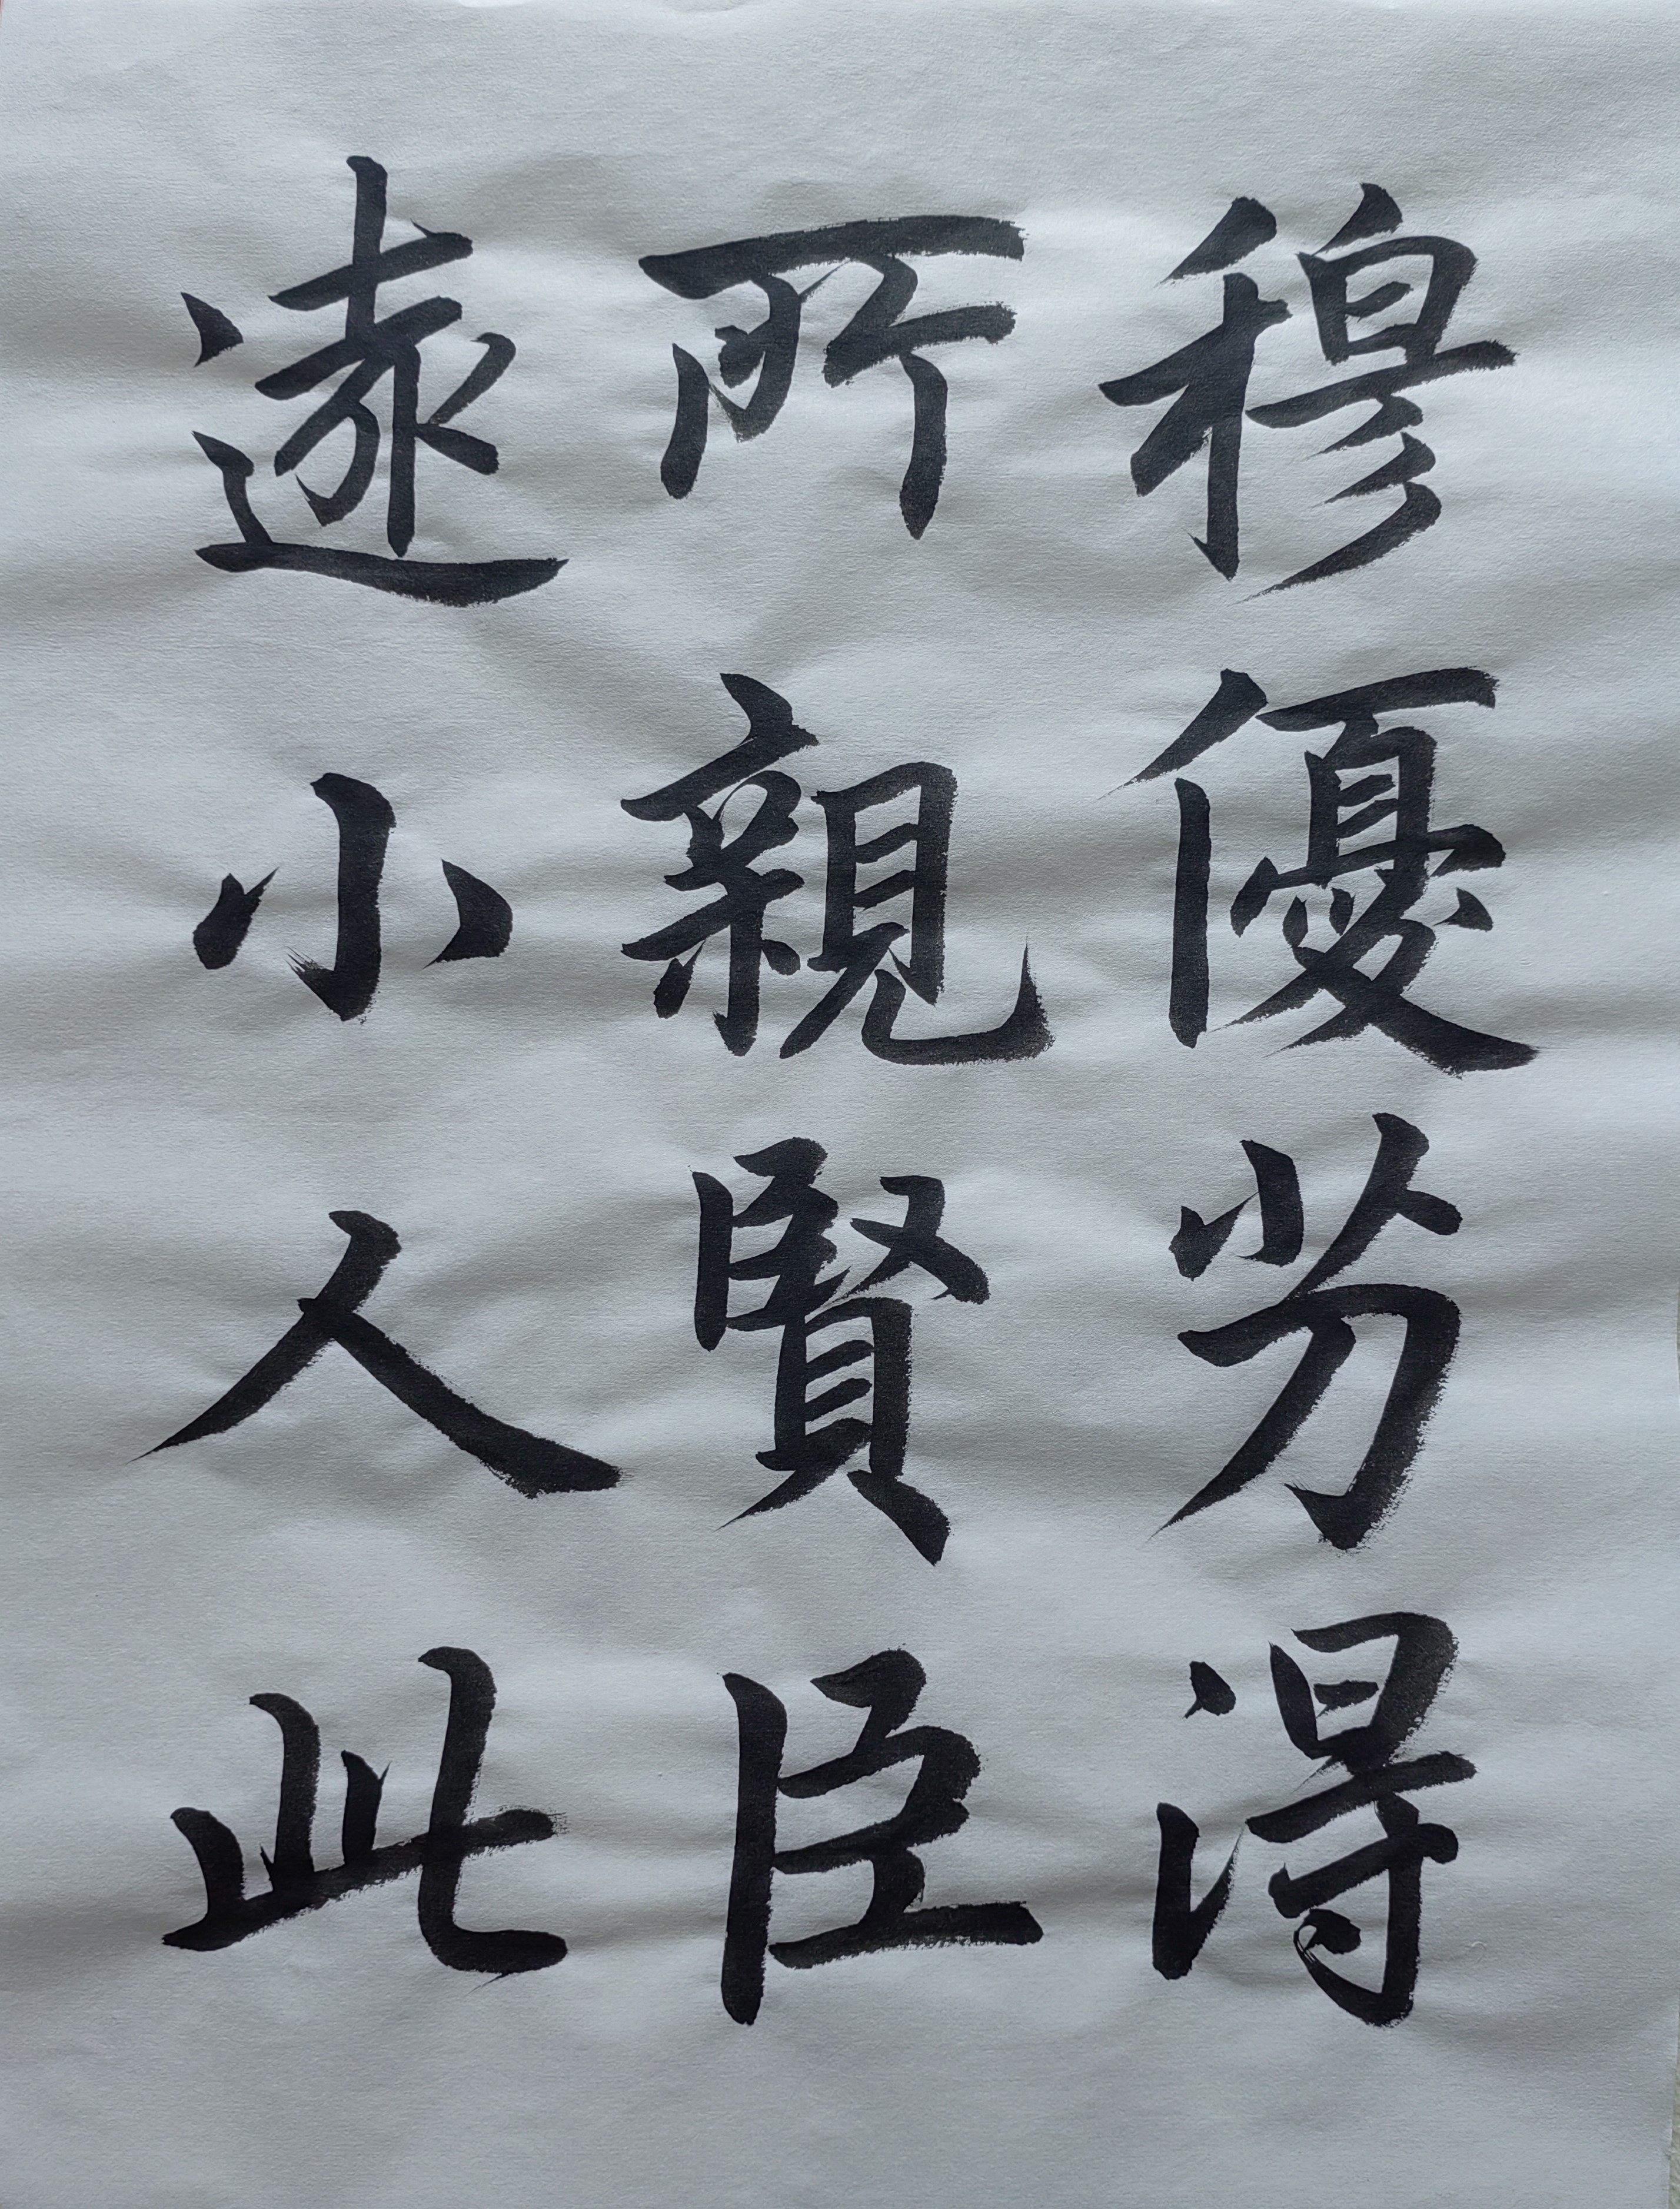 穆優劣得
所親賢臣
遠小人此